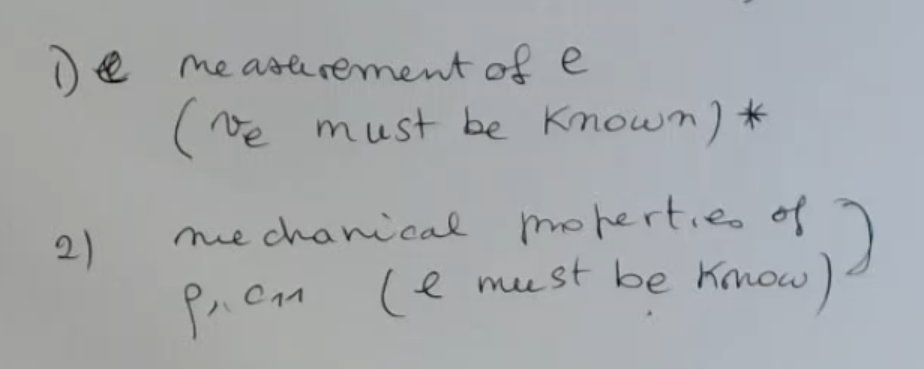 1) e measurement of e
(ve must be known) *
2) mechanical properties of
ρ, c11 (e must be know)